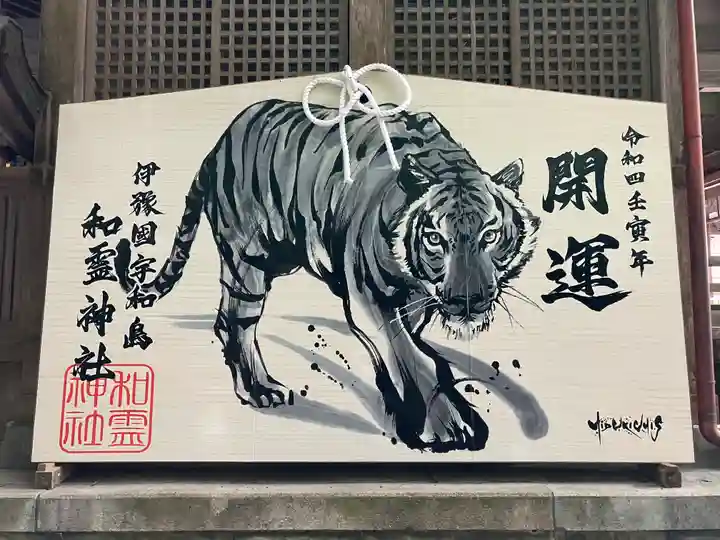 令和四壬寅年
開運
伊豫國宇和島
和霊神社
和霊
神社